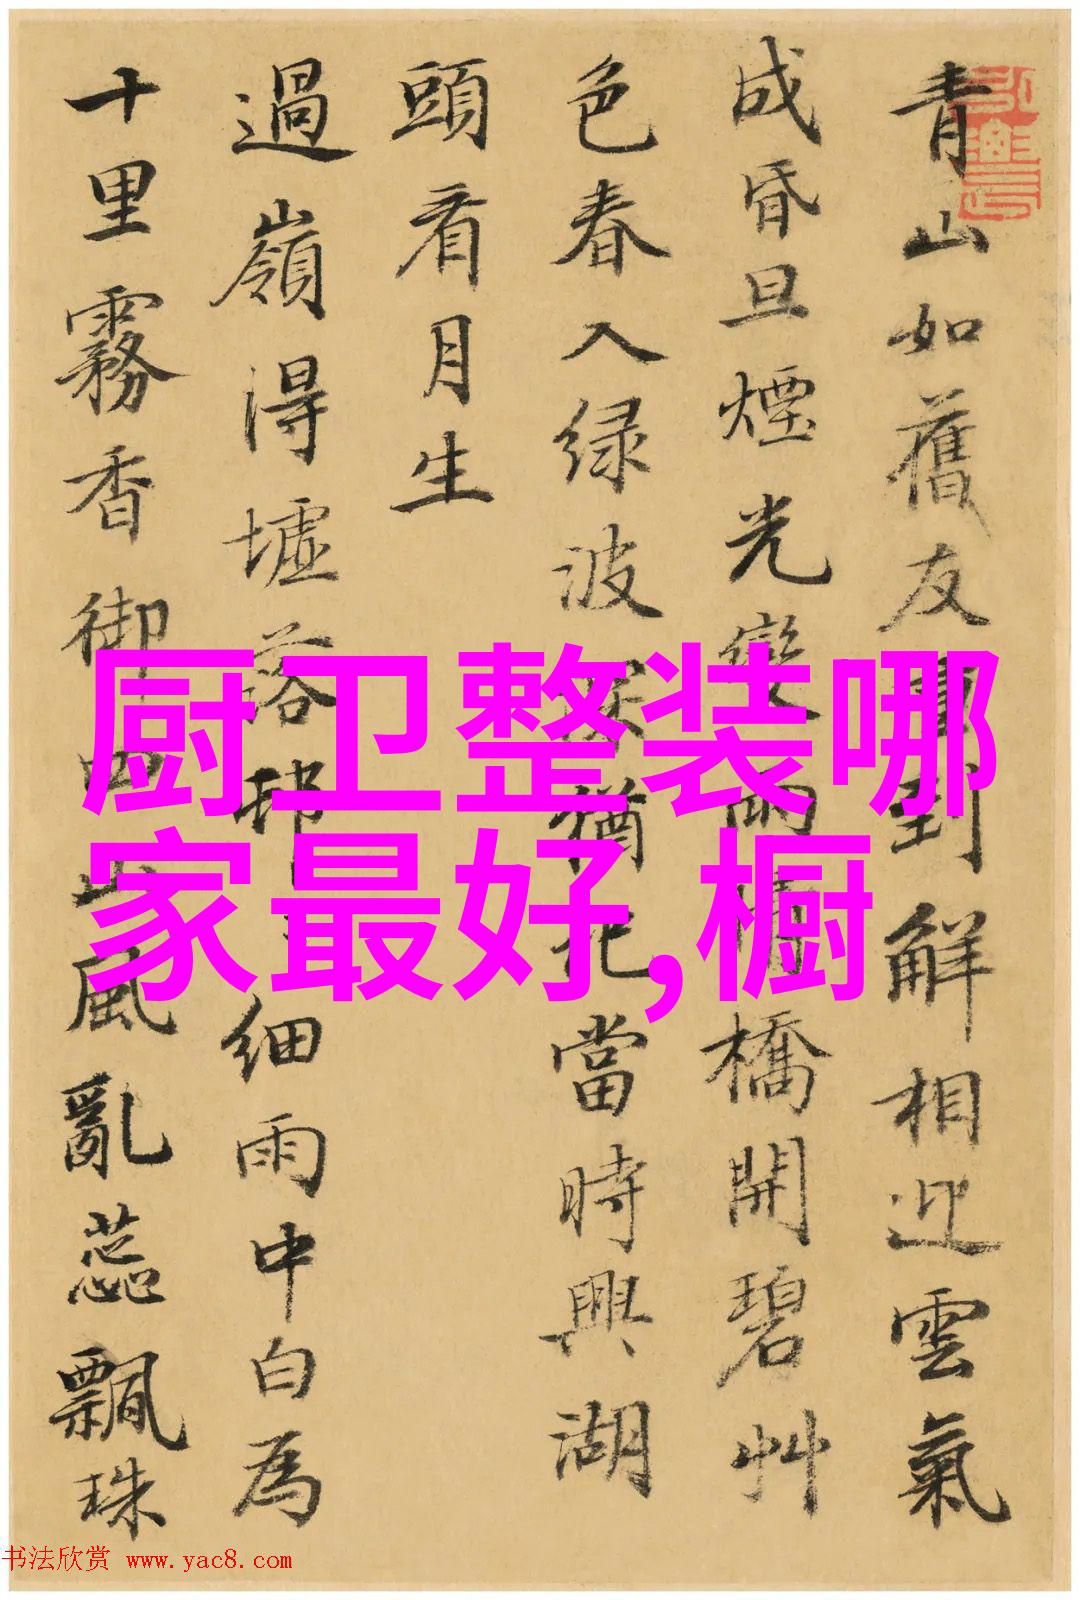 青山如舊友
到解相迎雲氣
成昏旦煙光變
雨晴橋開碧艸
色春入绿波
猶
當時興湖
頭看月生
過嶺得墟落
細雨中白為
十里霧香御
山風亂蕊飄珠
厨卫整装哪
家最好,橱
书法欣赏 www.yac8.com